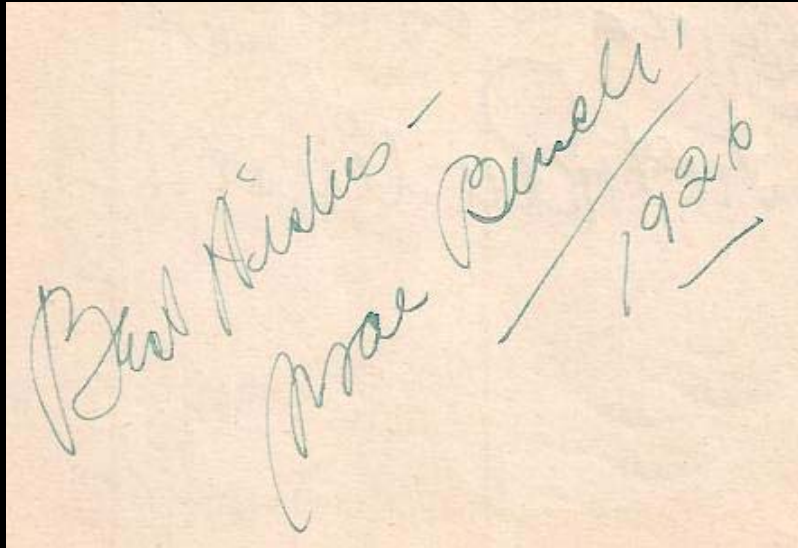 Best Wishes -
Mae Busch!
1926